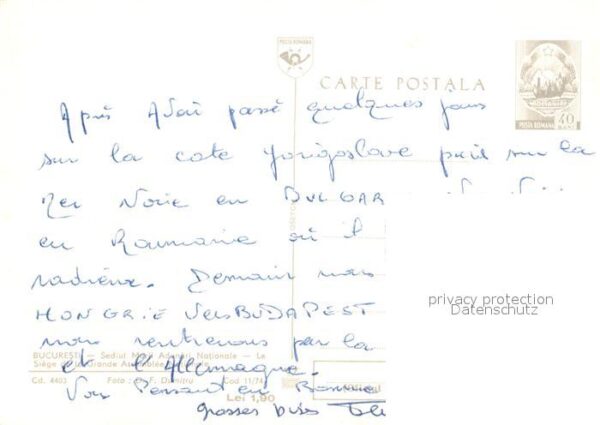 POSTA ROMANA
CARTE POSTALA
POSTA ROMANA 40 BANI
Après Avoir passé quelques jours
sur la cote Yougoslave puis sur la
Mer Noire en BULGAR
en Roumanie où il
radieux. Demain nous
HONGRIE vers BUDAPEST
nous rentrerons par la
et l'Allemagne.
grosses bises
BUCUREŞTI — Sediul Marii Adunări Naţionale — Le
Siège de la Grande Assemblée
Cd. 4403 Foto: F. Dimitriu Cod 11/74
Lei 1,90
privacy protection
Datenschutz